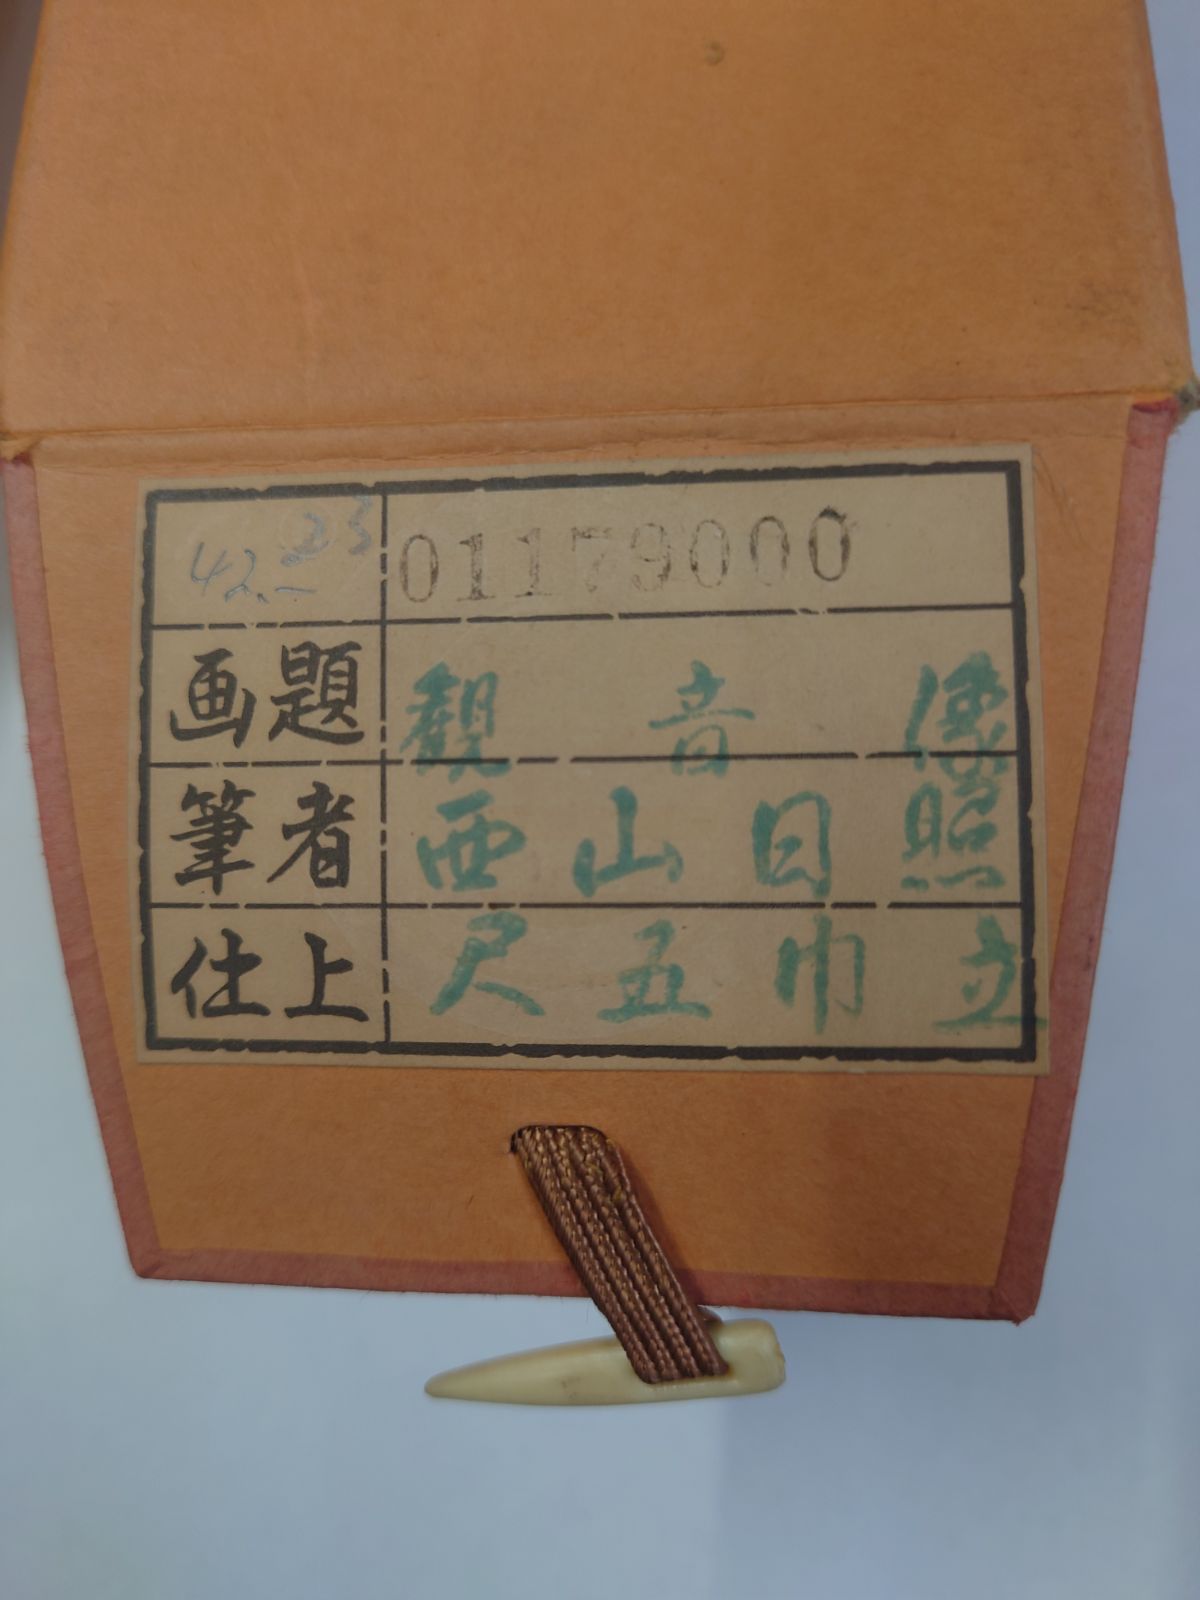 42.- 23 01179000
画題 観音像
筆者 西山日照
仕上 尺五巾立